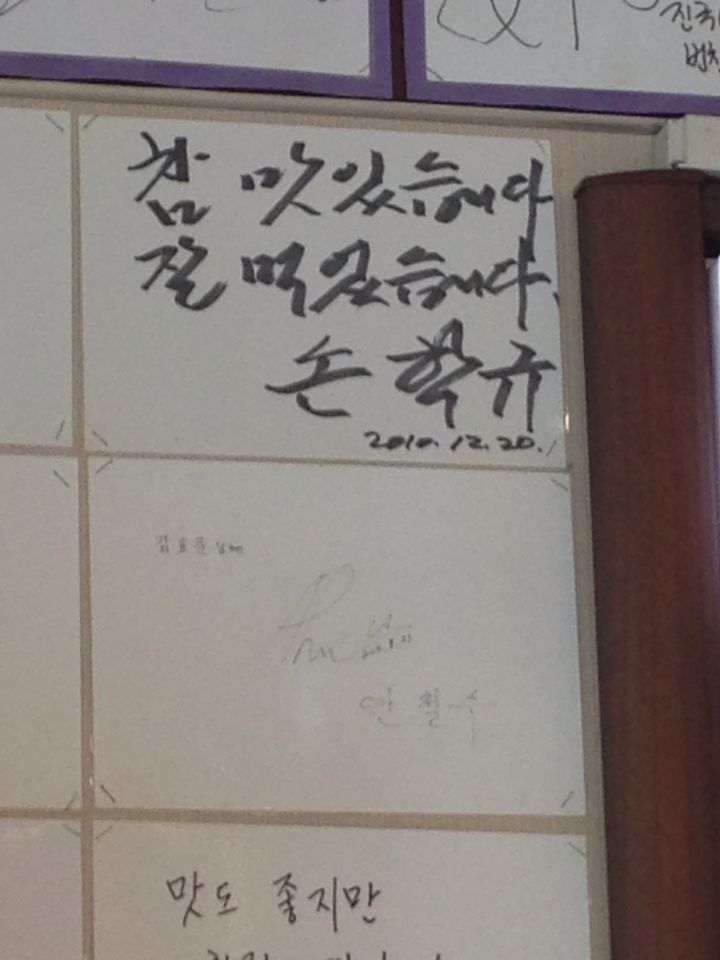 진국
참 맛있습니다
잘 먹었습니다.
손학규
2010. 12. 20.
안철수
맛도 좋지만